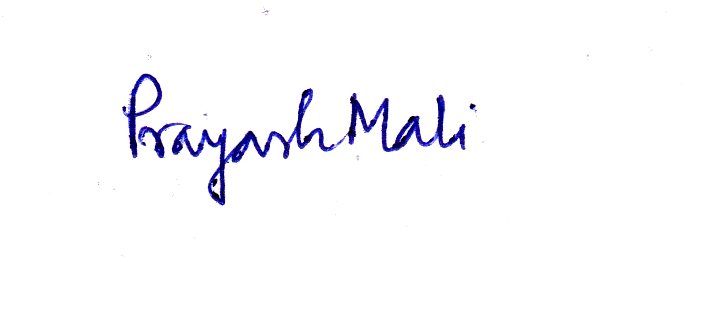 Prayash Mali